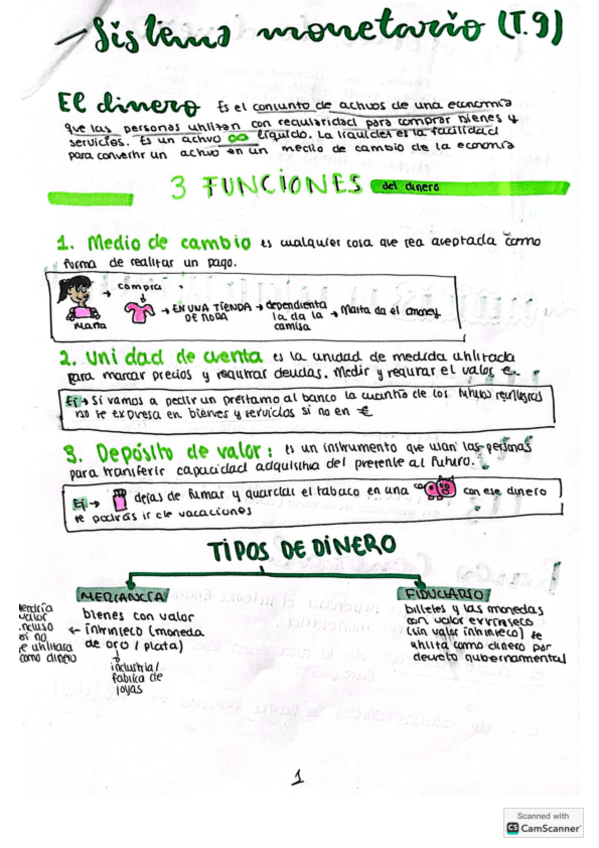 - Sistema monetario (T.9)
El dinero Es el conjunto de activos de una economía
que las personas utilizan con regularidad para comprar bienes y
servicios. Es un activo ∞ líquido. La liquidez es la facilidad
para convertir un activo en un medio de cambio de la economía
3 FUNCIONES del dinero
1. Medio de cambio es cualquier cosa que sea aceptada como
forma de realizar un pago.
→ compra
→ EN UNA TIENDA DE MODA → dependienta la da la camisa → Marta da el money
Marta
2. Unidad de cuenta es la unidad de medida utilizada
para marcar precios y registrar deudas. Medir y registrar el valor e.
Ej → Si vamos a pedir un préstamo al banco la cuantía de los futuros
no se expresa en bienes y servicios si no en €
3. Depósito de valor: es un instrumento que usan las personas
para transferir capacidad adquisitiva del presente al futuro.
Ej → dejas de fumar y guardas el tabaco en una con ese dinero
te podrás ir de vacaciones
TIPOS DE DINERO
MERCANCÍA
bienes con valor
← intrínseco (moneda
de oro / plata)
industrial
fabrica de
joyas
tendría
valor
incluso
si no
se utilizara
como dinero
FIDUCIARIO
billetes y las monedas
con valor extrínseco
(sin valor intrínseco) se
utiliza como dinero por
decreto gubernamental
1
Scanned with
CS CamScanner